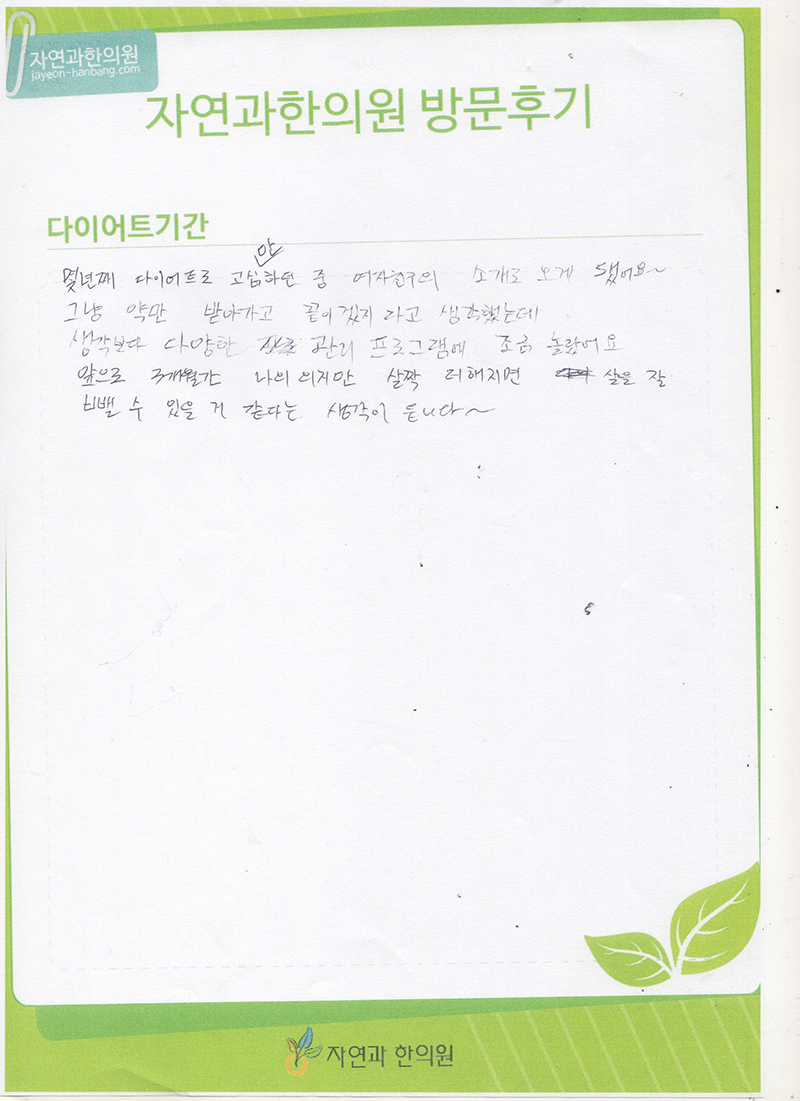 자연과한의원
jayeon-hanbang.com
자연과한의원 방문후기
다이어트기간
몇년째 다이어트로 고심만하던 중 여자친구의 소개로 오게 됐어요~
그냥 약만 받아가고 끝이겠지 라고 생각했는데
생각보다 다양한 관리 프로그램에 조금 놀랐어요
앞으로 3개월간 나의 의지만 살짝 더해지면 살을 잘
빼낼 수 있을 거 같다는 생각이 듭니다~
자연과 한의원